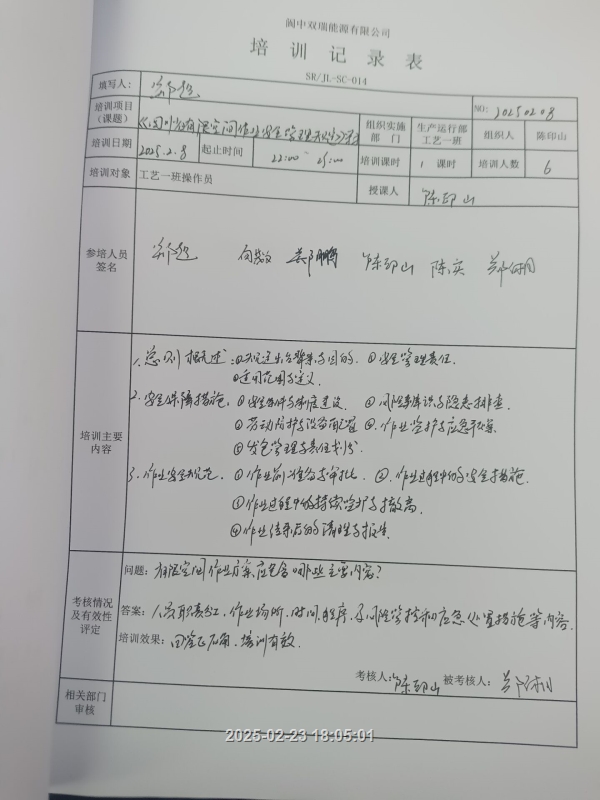 阆中双瑞能源有限公司
培训记录表
SR/JL-SC-014
填写人：郑越
NO: 20250208
培训项目（课题） 有限空间作业安全管理规定
组织实施部门 生产运行部工艺一班 组织人 陈印山
培训日期 2025.2.8 起止时间 22:00 ~ 23:00 培训课时 1 课时 培训人数 6
培训对象 工艺一班操作员 授课人 陈印山
参培人员签名 郑越 陈印山 陈实
培训主要内容
1. 总则概述：①规定出台背景与目的. ②安全管理责任.
③适用范围与定义.
2. 安全保障措施. ①安全条件与制度建设. ②风险辨识与隐患排查.
③劳动防护与设备配置 ④作业监护与应急预案
⑤发包管理与责任划分.
3. 作业安全规范. ①作业前准备与审批. ②作业过程中的安全措施.
③作业过程中的持续监护与撤离.
④作业结束后的清理与报告.
考核情况及有效性评定
问题：有限空间作业方案应包含哪些主要内容？
答案：人员职责分工, 作业场所, 时间, 程序, 及风险管控和应急处置措施等内容.
培训效果：回答正确, 培训有效.
考核人：陈印山 被考核人：
相关部门审核
2025-02-23 18:05:01